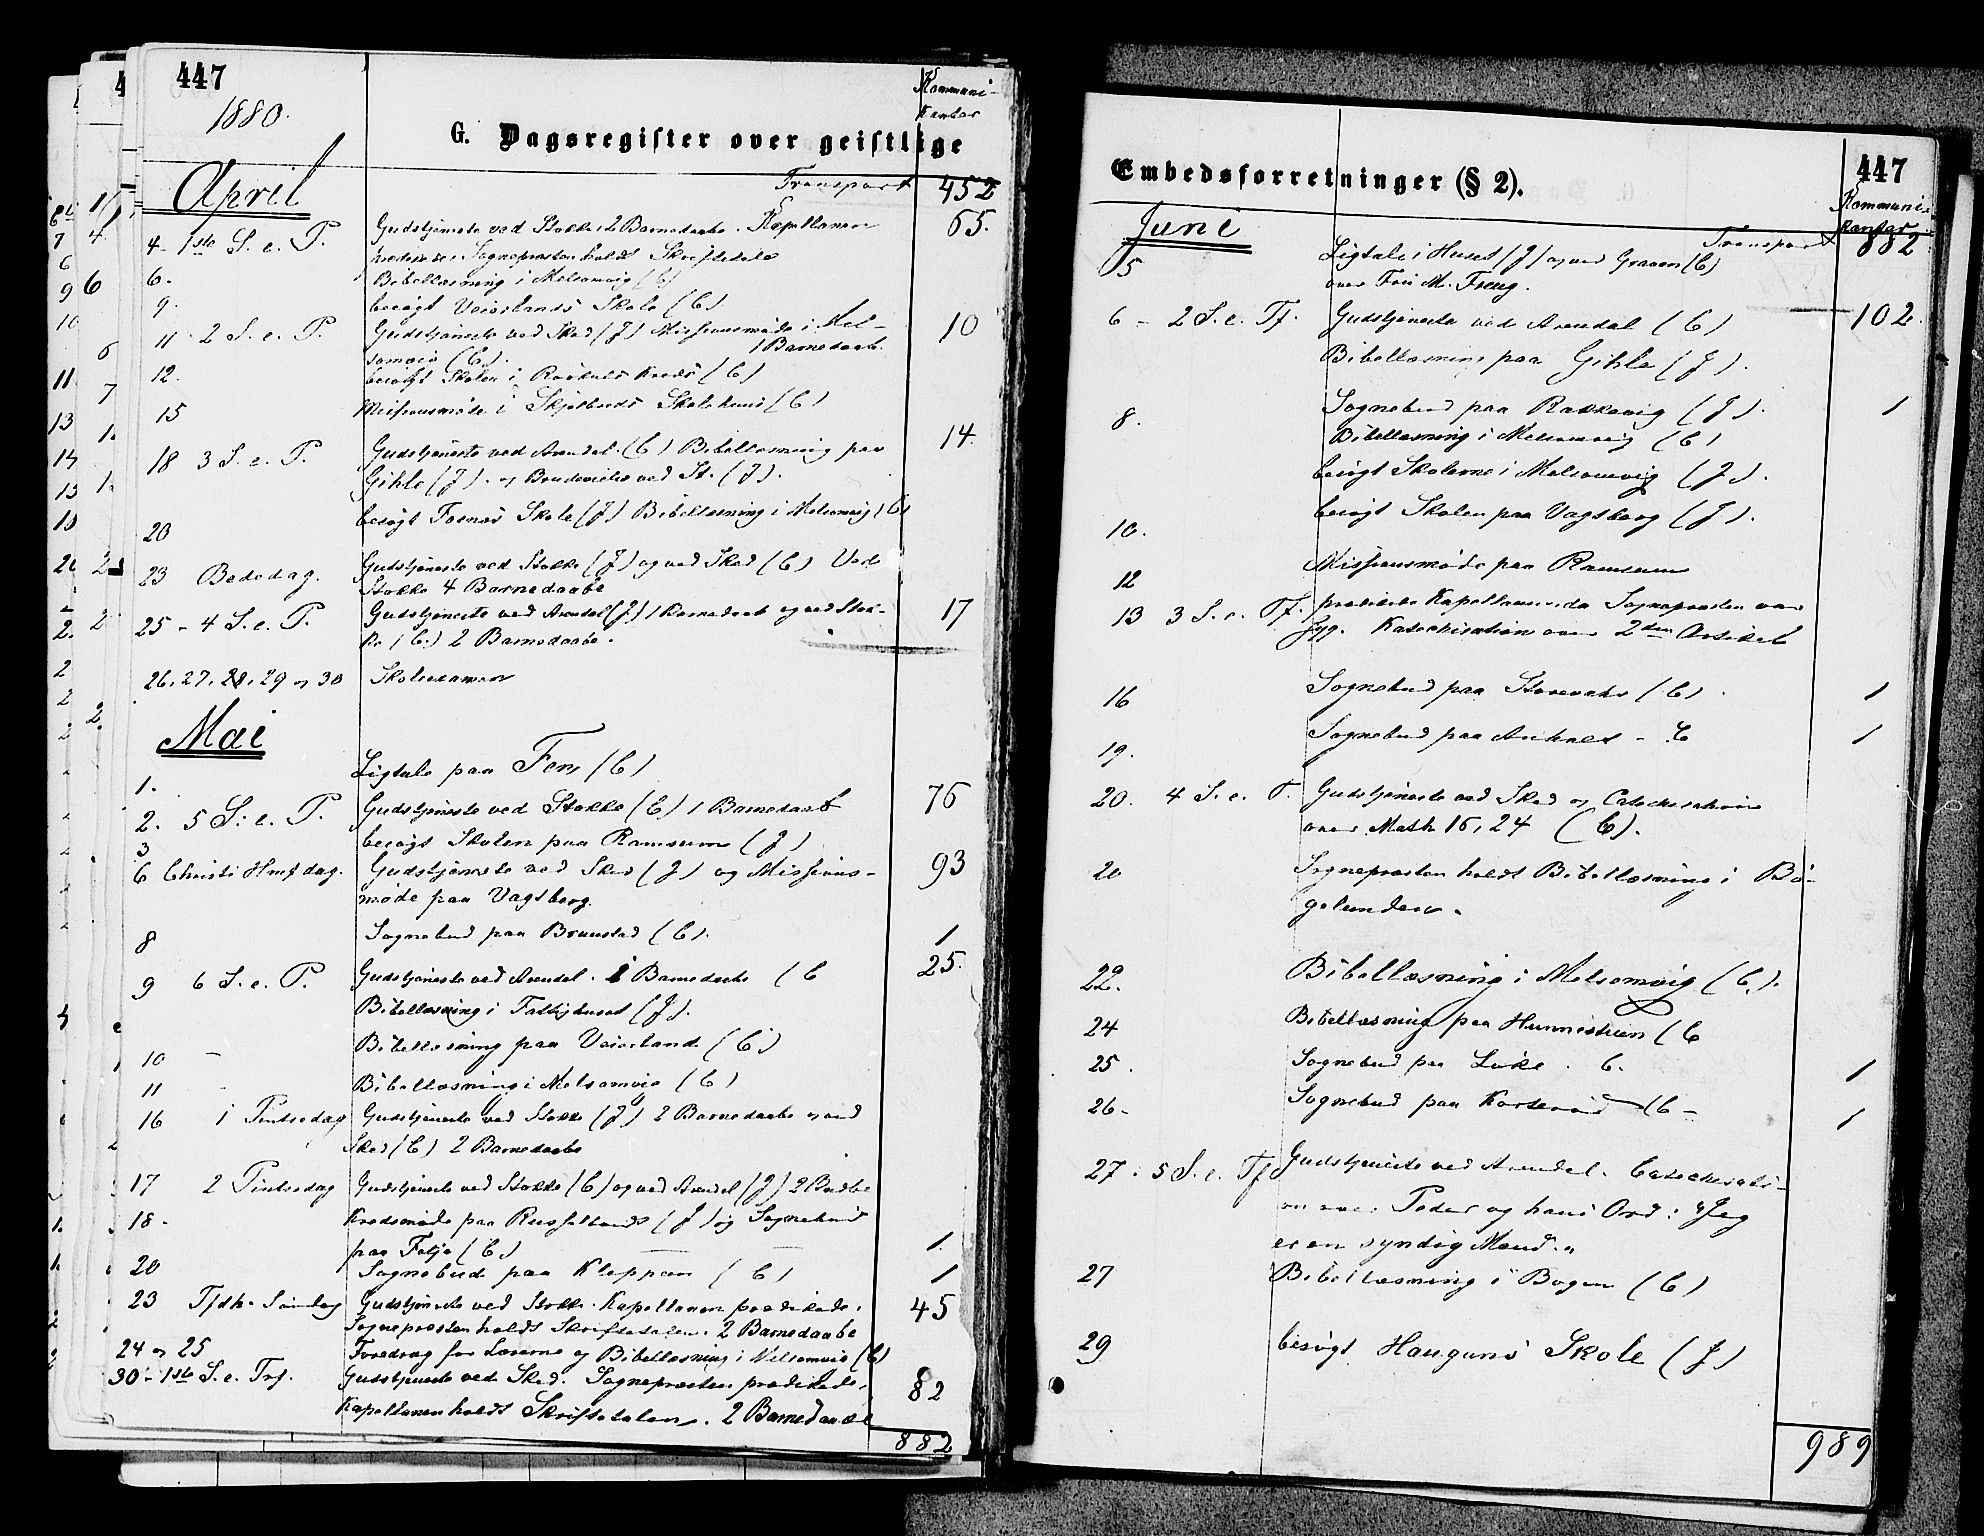 447
1880.
Kommuni-
kanter
G. Dagsregister over geistlige
April
Transport 452
4 - 1ste S. e. P. Gudstjeneste ved Stokke 2 Barnedaabe. Kapellanen 65.
prædikede. Sognepræsten holdt Skriftetale
6. Bibellæsning i Melsomvig (C)
9. besøgt Veierlands Skole (C)
11 - 2 S. e. P. Gudstjeneste ved Skee (J) Missionsmøde i Mel- 10
somvig (C). 1 Barnedaab.
12. besøgt Skolen i Kreds (C)
15 Missionsmøde i Skjelbreds Skolehuus (C)
18 3 S. e. P. Gudstjeneste ved Arendal. (C) Bibellæsning paa 14.
Gihle (J). og Brudevielse ved St. (J).
20 besøgt Fosnæs Skole (J) Bibellæsning i Melsomvig (C)
23 Bededag. Gudstjeneste ved Stokke (J) og ved Skee (C) Ved
Stokke 4 Barnedaabe
25 - 4 S. e. P. Gudstjeneste ved Arendal (J) 1 Barnedaab og ved Stok- 17
ke (C.) 2 Barnedaabe.
26, 27, 28, 29 og 30 Skoleexamen
Mai
1. Ligtale paa Fen (C)
2. 5 S. e. P. Gudstjeneste ved Stokke (C) 1 Barnedaab 76
3 besøgt Skolen paa Ramsum (J)
6 Christi Hmf dag. Gudstjeneste ved Skee (J) og Missions- 93
møde paa Vagsberg.
8 Sognebud paa Brunstad (C). 1
9 6 S. e. P. Gudstjeneste ved Arendal. 1 Barnedaabe (C 25.
Bibellæsning i Fattighuset (J).
10 - Bibellæsning paa Veierland (C)
11 - Bibellæsning i Melsomvig (C)
16 1 Pintsedag Gudstjeneste ved Stokke (J) 2 Barnedaabe og ved
Skee (C) 2 Barnedaabe
17 2 Pintsedag Gudstjeneste ved Stokke (C) og ved Arendal (J) 2
18. Kredsmøde paa (J) og Sognebud
paa Feije (C.) 1.
20 Sognebud paa Kleppan (C) 1
23 Tfdh. Søndag Gudstjeneste ved Stokke. Kapellanen prædikede. 45
Sognepræsten holdt Skriftetalen. 2 Barnedaabe
24 og 25 Foredrag for Lærerne og Bibellæsning i Melsomvig (C)
30 - 1ste S. e. Trf. Gudstjeneste ved Skee. Sognepræsten prædikede. 82
Kapellanen holdt Skriftetalen. 2 Barnedaabe
882
Embedsforretninger (§ 2).
447
Kommuni-
kanter
Juni
Transport 882
5 Ligtale i Huset (J) og ved Graven (C)
over Fru M. Freng.
6 - 2 S. e. Tf. Gudstjeneste ved Arendal (C) 102.
Bibellæsning paa Gihle (J).
8. Sognebud paa Rakkevig (J). 1
Bibellæsning i Melsomvig (C)
besøgt Skolerne i Melsomvig (J).
10. besøgt Skolen paa Vagsberg (J).
12 Missionsmøde paa Ramsum
13 3 S. e. Tf. prædikede Kapellanen da Sognepræsten var
syg. Katechisation over 2den Artikel
16 Sognebud paa Storevahr (C). 1
19. Sognebud paa Auholt - C 1
20. 4 S. e. T. Gudstjeneste ved Skee og Catechisation
over Math 16, 24 (C).
20 Sognepræsten holdt Bibellæsning i Bø-
gelunden.
22. Bibellæsning i Melsomvig (C.).
24 Bibellæsning paa Hunnestuen (C
25. Sognebud paa Løke. C. 1
26. Sognebud paa Korterød (C - 1
27. 5 S. e. Tf Gudstjeneste ved Arendal. Catechisati-
on over Peder og hans Ord: "Jeg
er en syndig Mand."
27 Bibellæsning i Bogen (C)
29 besøgt Haugans Skole (J)
989